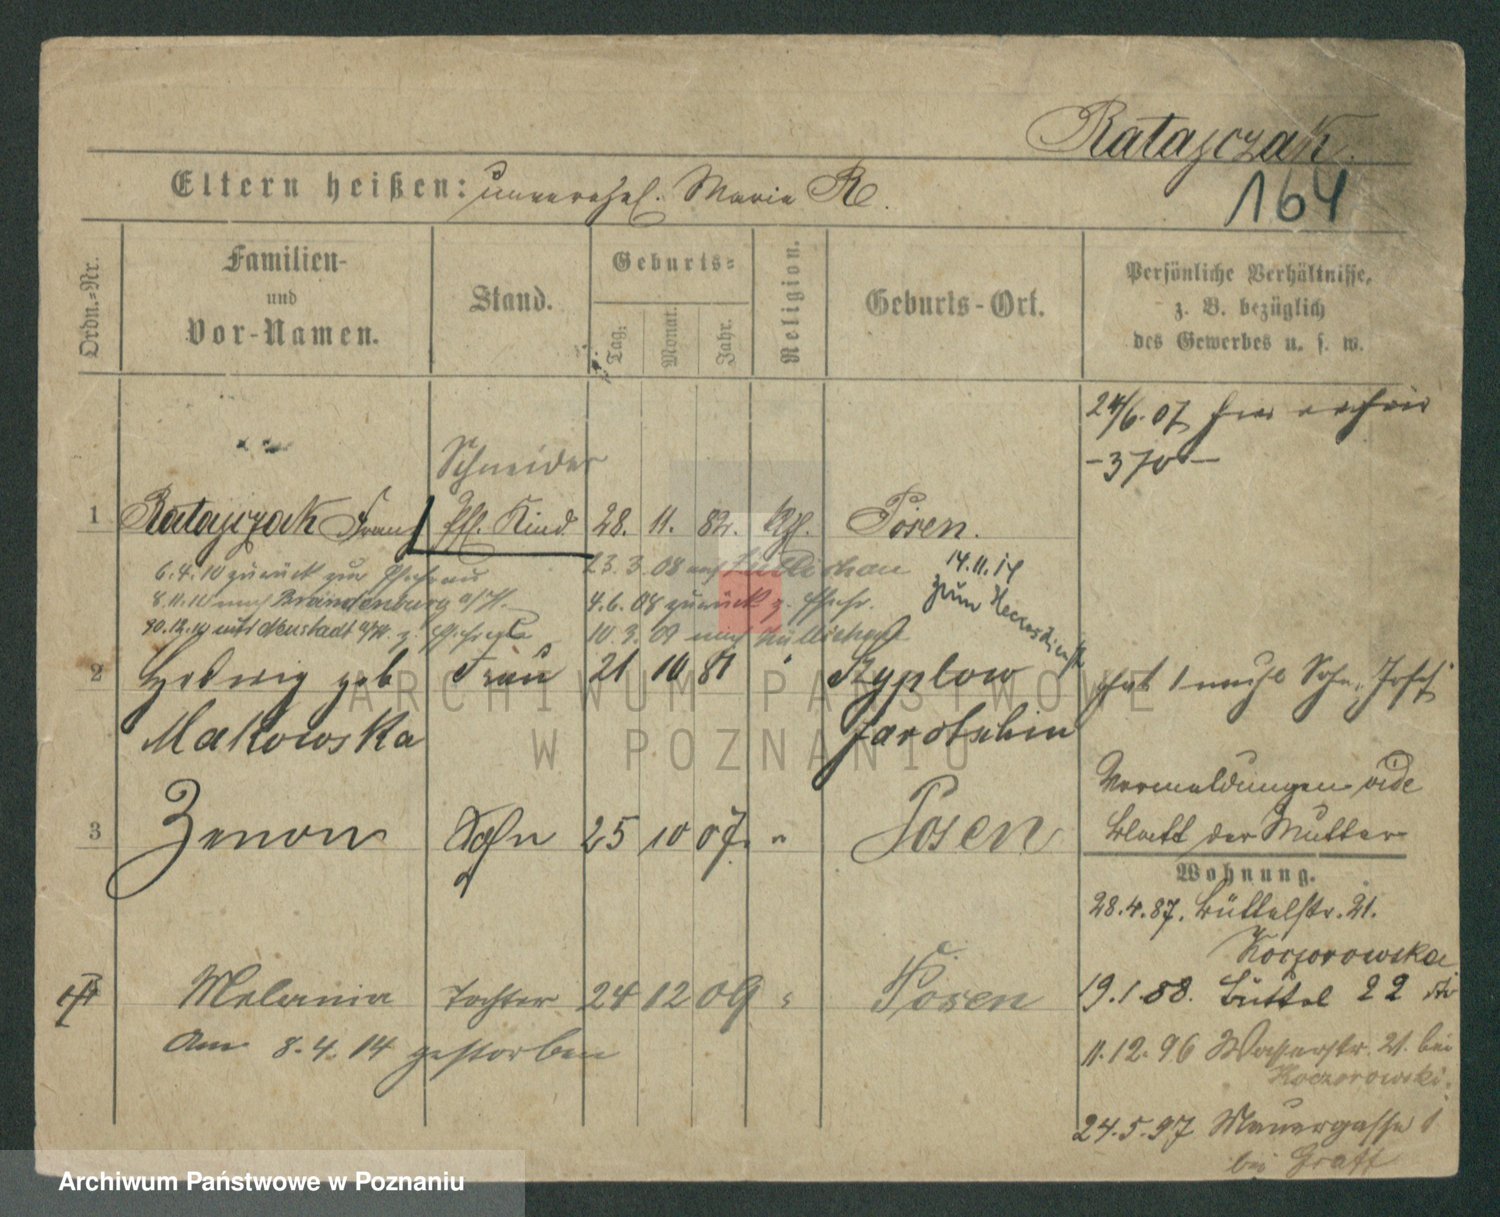 Ratajczak.
164
Eltern heißen: unverehel. Marie R.
Ordn.=Nr.
Familien-
und
Vor-Namen.
Stand.
Geburts=
Tag.
Monat.
Jahr.
Religion.
Geburts-Ort.
Persönliche Verhältnisse,
z. B. bezüglich
des Gewerbes u. s. w.
24/6.07
-370-
Schneider
1 Ratajczak Franz Kind 28. 11. 82. Posen.
6.4.10 zurück 23.3.08 14.11.14
8.11.10 nach Brandenburg a/H. 4.6.08 zurück zum Heeresdienst
10.3.09 nach
2 Hedwig geb Frau 21 10 81 " hat
Makowska Jarotschin
3 Zenon Sohn 25 10 07. " Posen
Vermeldungen vide
Blatt der Mutter
Wohnung.
28.4.87. Büttelstr. 21.
Koczorowska
Melania Tochter 24 12 09 " Posen
19.1.88. Büttel 22
Am 8.4.14 gestorben
11.12.96 Wasserstr. 21. bei
Koczorowski.
24.5.97 Mauergasse 1
bei Graff
ARCHIWUM PAŃSTWOWE
W POZNANIU
Archiwum Państwowe w Poznaniu